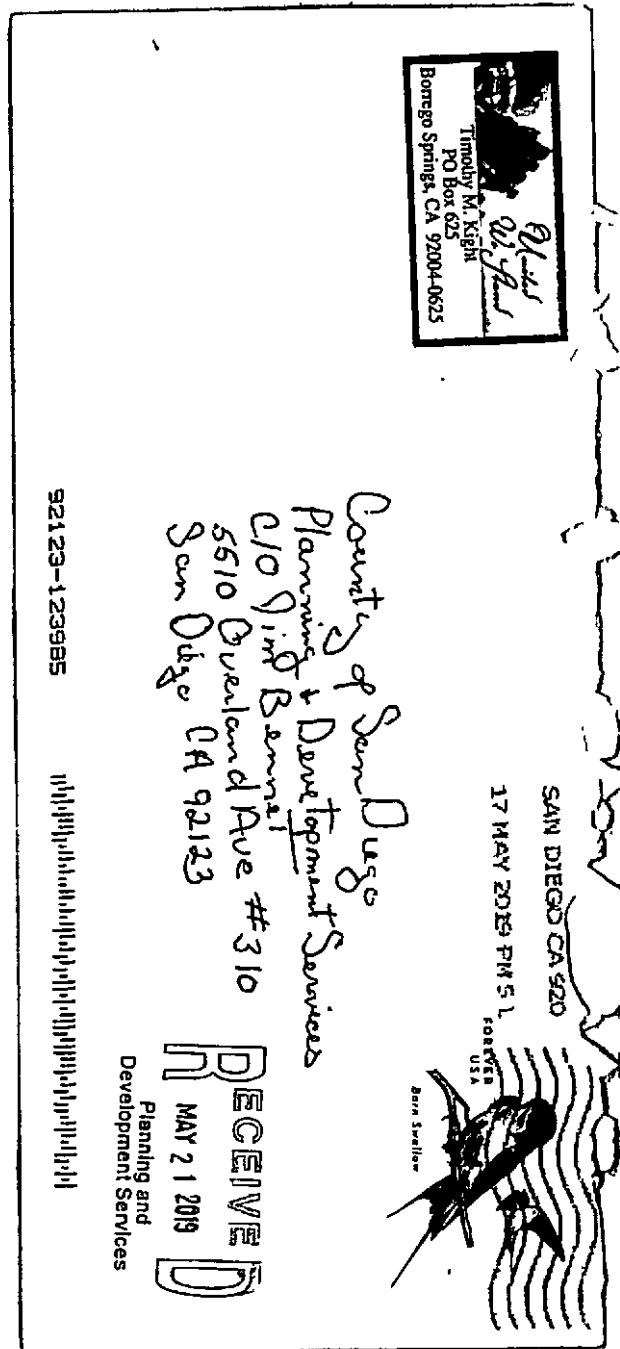 United
We Stand
Timothy M. Kight
PO Box 625
Borrego Springs, CA 92004-0625
SAN DIEGO CA 920
17 MAY 2019 PM 5 L
FOREVER
USA
Barn Swallow
County of San Diego
Planning & Development Services
C/O Jim Bennet
5510 Overland Ave #310
San Diego CA 92123
RECEIVED
MAY 21 2019
Planning and
Development Services
92123-123985